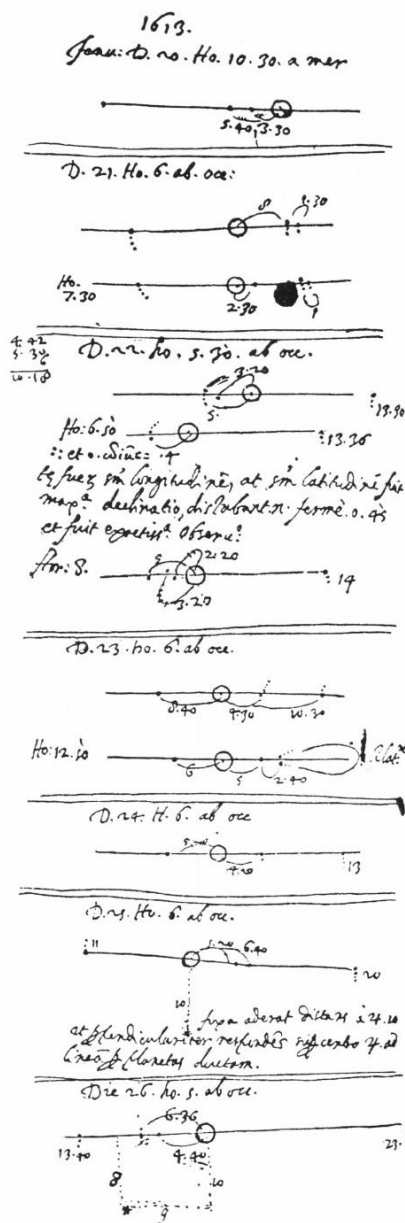 1613.
Janu: D. 20. Ho. 10. 30. a mer
5.40, 3.30
D. 21. Ho. 6. ab. occ:
8 1.30
Ho.
7.30
2.30
4. 42
5. 36
10. 18
D. 22. ho. 5. 30. ab occ.
3.20
5.
13.30
Ho: 6. 50
13.36
et 4
fuer longitudinē, at latitudinē fuit
max.ᵃ declinatio, distabant n. fermè. 0. 45
et fuit obseru.
Hor: 8.
5 2.20
3.20
14
D. 23. ho. 6. ab occ.
8.40 4.30 10.30
Ho: 12. 50
6 5 2.40
D. 24. H. 6. ab occ
4.20
13
D. 25. Ho. 6. ab occ.
11
5.20 6.40
20
10
fixa aderat distans à 4. 10
at ꝑpendiculariter respondēs centro 4. ad
lineā ꝑ planetas ductam.
Die 26. ho. 5. ab occ.
6.36
13.40
4.40
23.
8
10
9